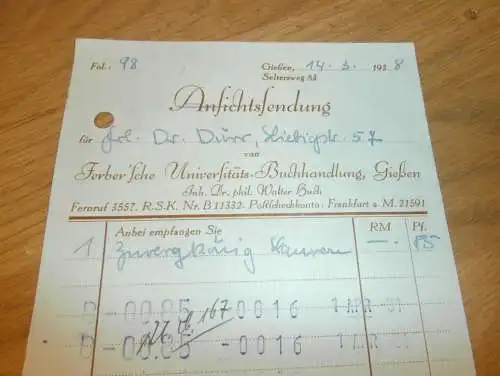 Fol.: 98
Gießen, 14. 3. 1938
Seltersweg 83
Ansichtssendung
für Frl. Dr. Dürr, Liebigstr. 57
von
Ferber'sche Universitäts-Buchhandlung, Gießen
Inh. Dr. phil. Walter Buch
Fernruf 3557. R.S.K. Nr. B 11332. Postscheckkonto: Frankfurt a. M. 21591
Anbei empfangen Sie RM. Pf.
1 Zwergkönig Laurin —. 85
-0016
-0016